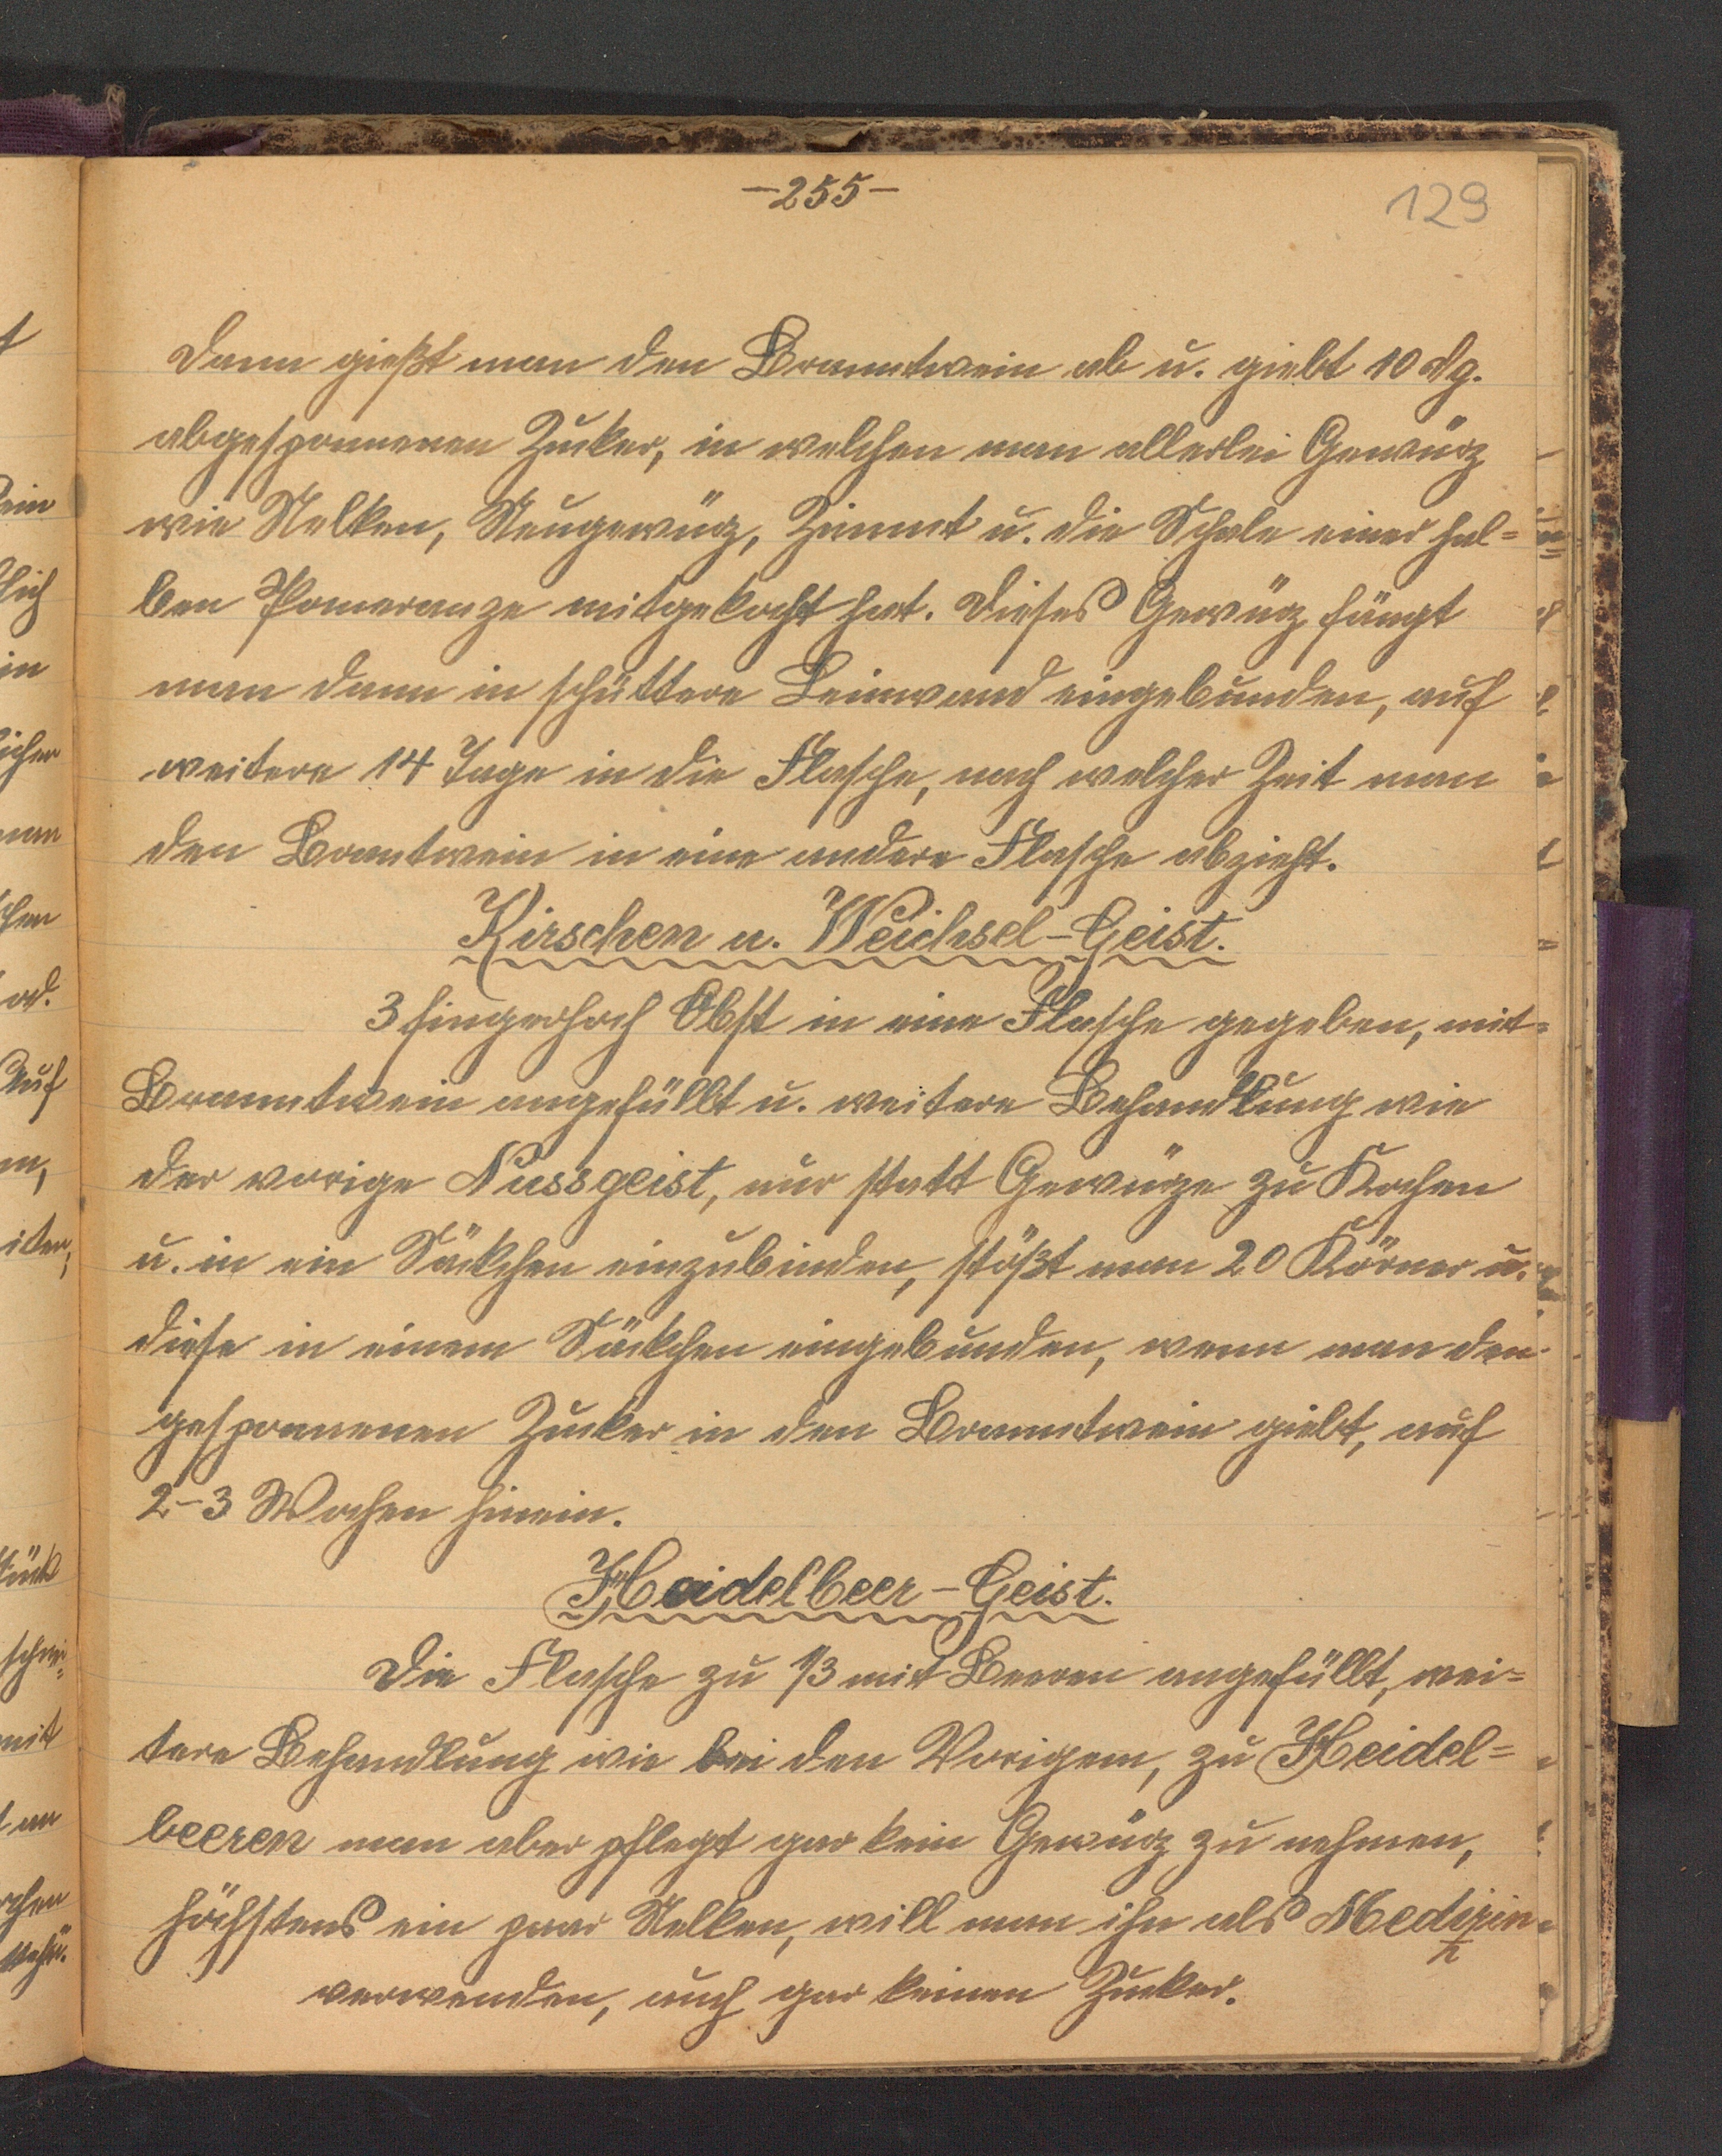 -255-
129
Dann gießt man den Branntwein ab u. giebt 10 dg.
abgesponnenen Zucker, in welchen man allerlei Gewürz
wie Nelken, Neugewürz, Zimmt u. die Schale einer hal=
ben Pomeranze mitgekocht hat. Dieses Gewürz hängt
man dann in schüttere Leinwand eingebunden, auf
weitere 14 Tage in die Flasche, nach welcher Zeit man
den Brantwein in eine andere Flasche abzieht.
Kirschen u. Weichsel-Geist.
3 fingerhoch Obst in eine Flasche gegeben, mit
Branntwein angefüllt u. weitere Behandlung wie
der vorige Nussgeist, nur statt Gewürze zu Kochen
u. in ein Säckchen einzubinden, stößt man 20 Körner u.
diese in einem Säckchen eingebunden, wenn man den
gesponnenen Zucker in den Branntwein giebt, auf
2-3 Wochen hinein.
Heidelbeer-Geist.
Die Flasche zu 1/3 mit Beeren angefüllt, wei=
tere Behandlung wie bei den Vorigem, zu Heidel=
beeren man aber pflegt gar kein Gewürz zu nehmen,
höchstens ein paar Nelken, will man ihn als Medizin
verwenden, auch gar keinen Zucker.